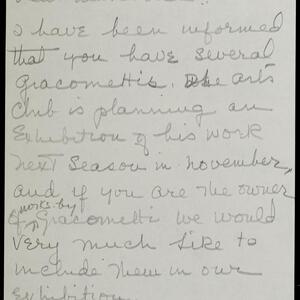 I have been informed
that you have several
Giacomettis. The Arts
Club is planning an
Exhibition of his work
next season in November,
and if you are the owner
of works by Giacometti we would
very much like to
include them in our
Exhibition